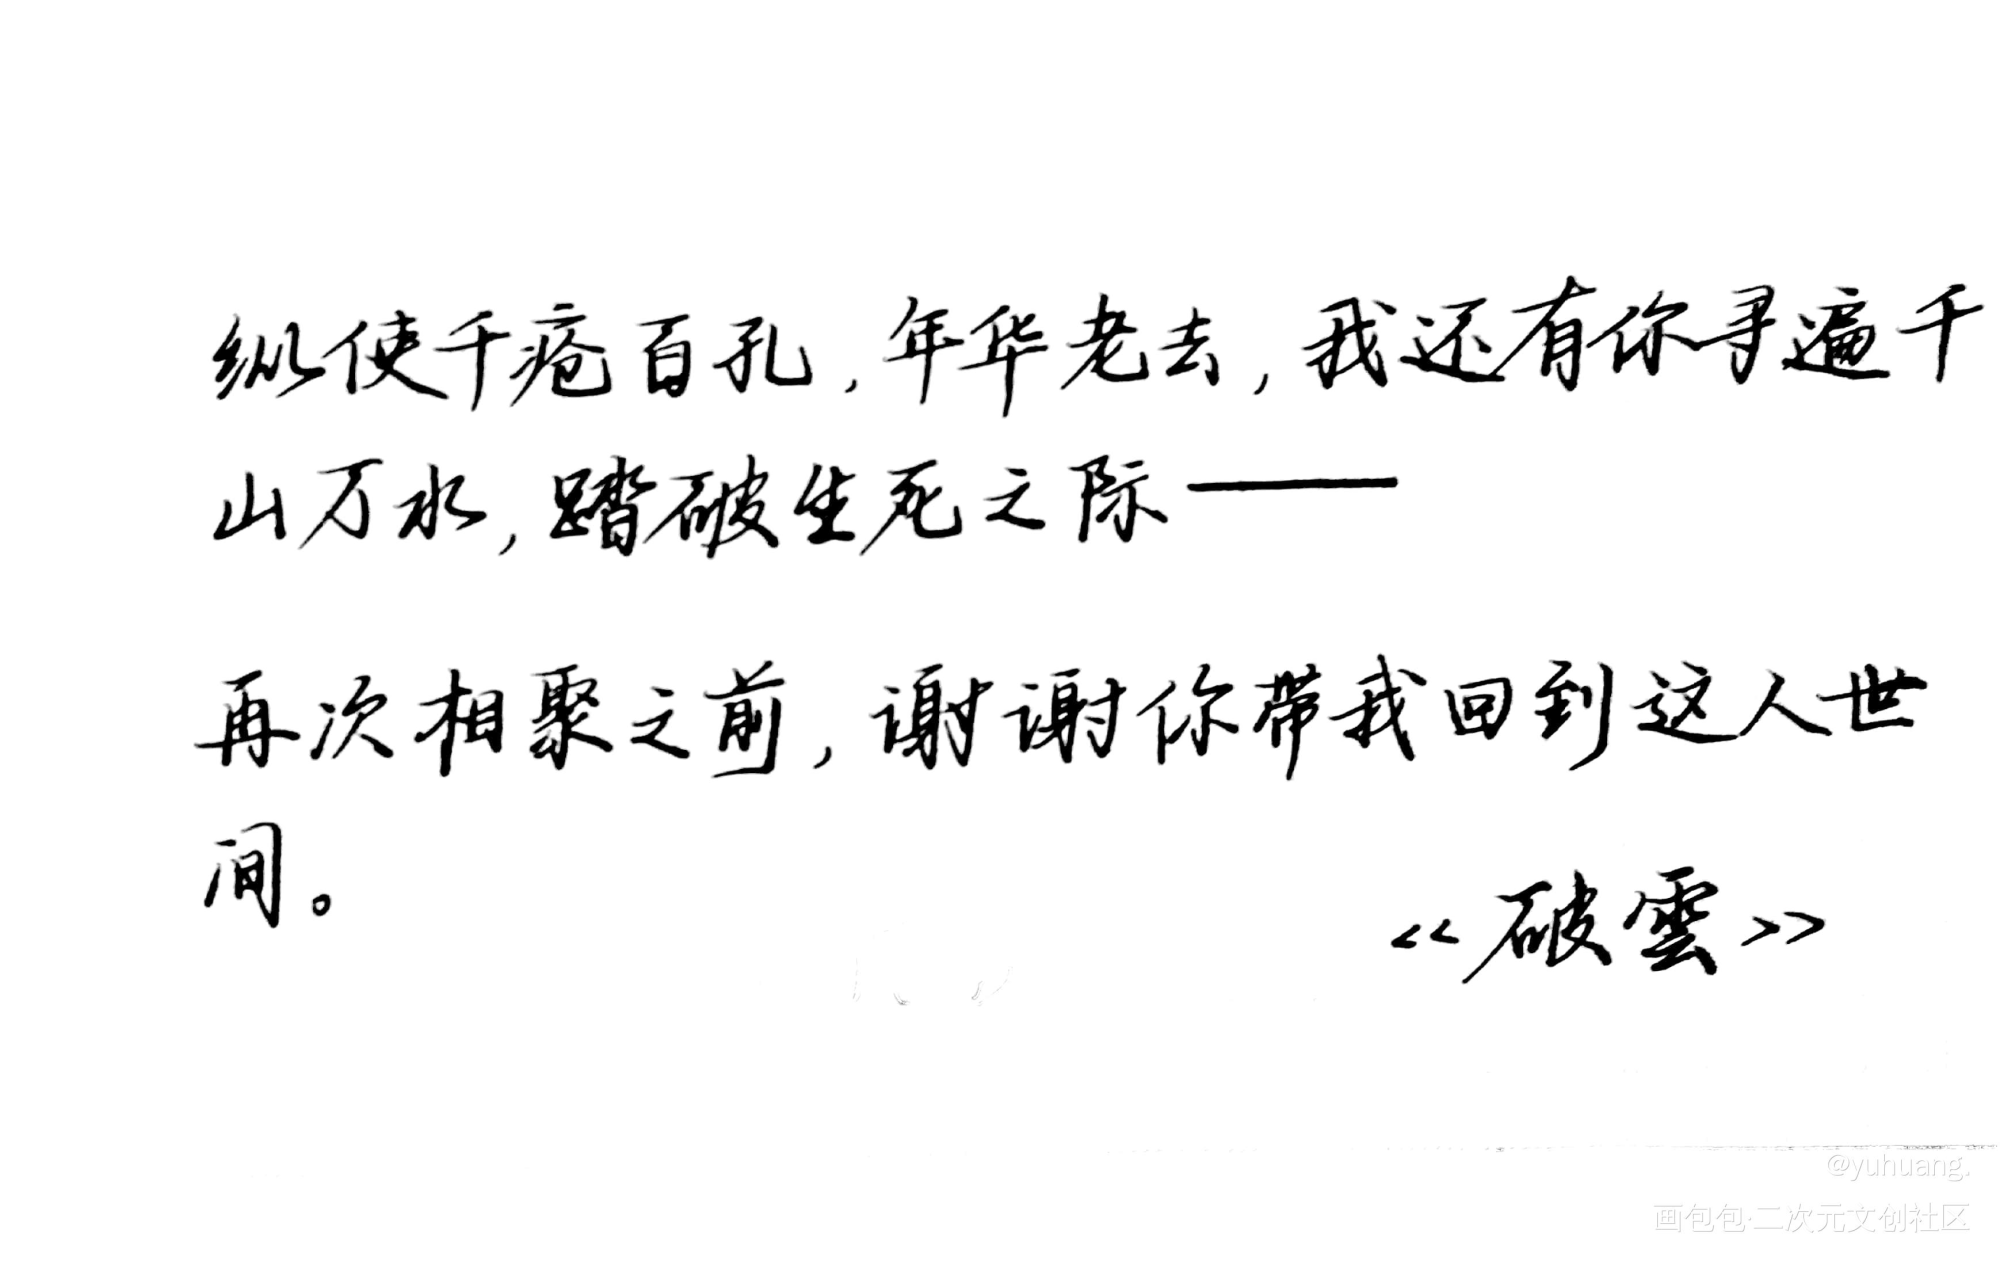 纵使千疮百孔，年华老去，我还有你寻遍千
山万水，踏破生死之际——
再次相聚之前，谢谢你带我回到这人世
间。
《破雲》
@yuhuang.
画包包·二次元文创社区